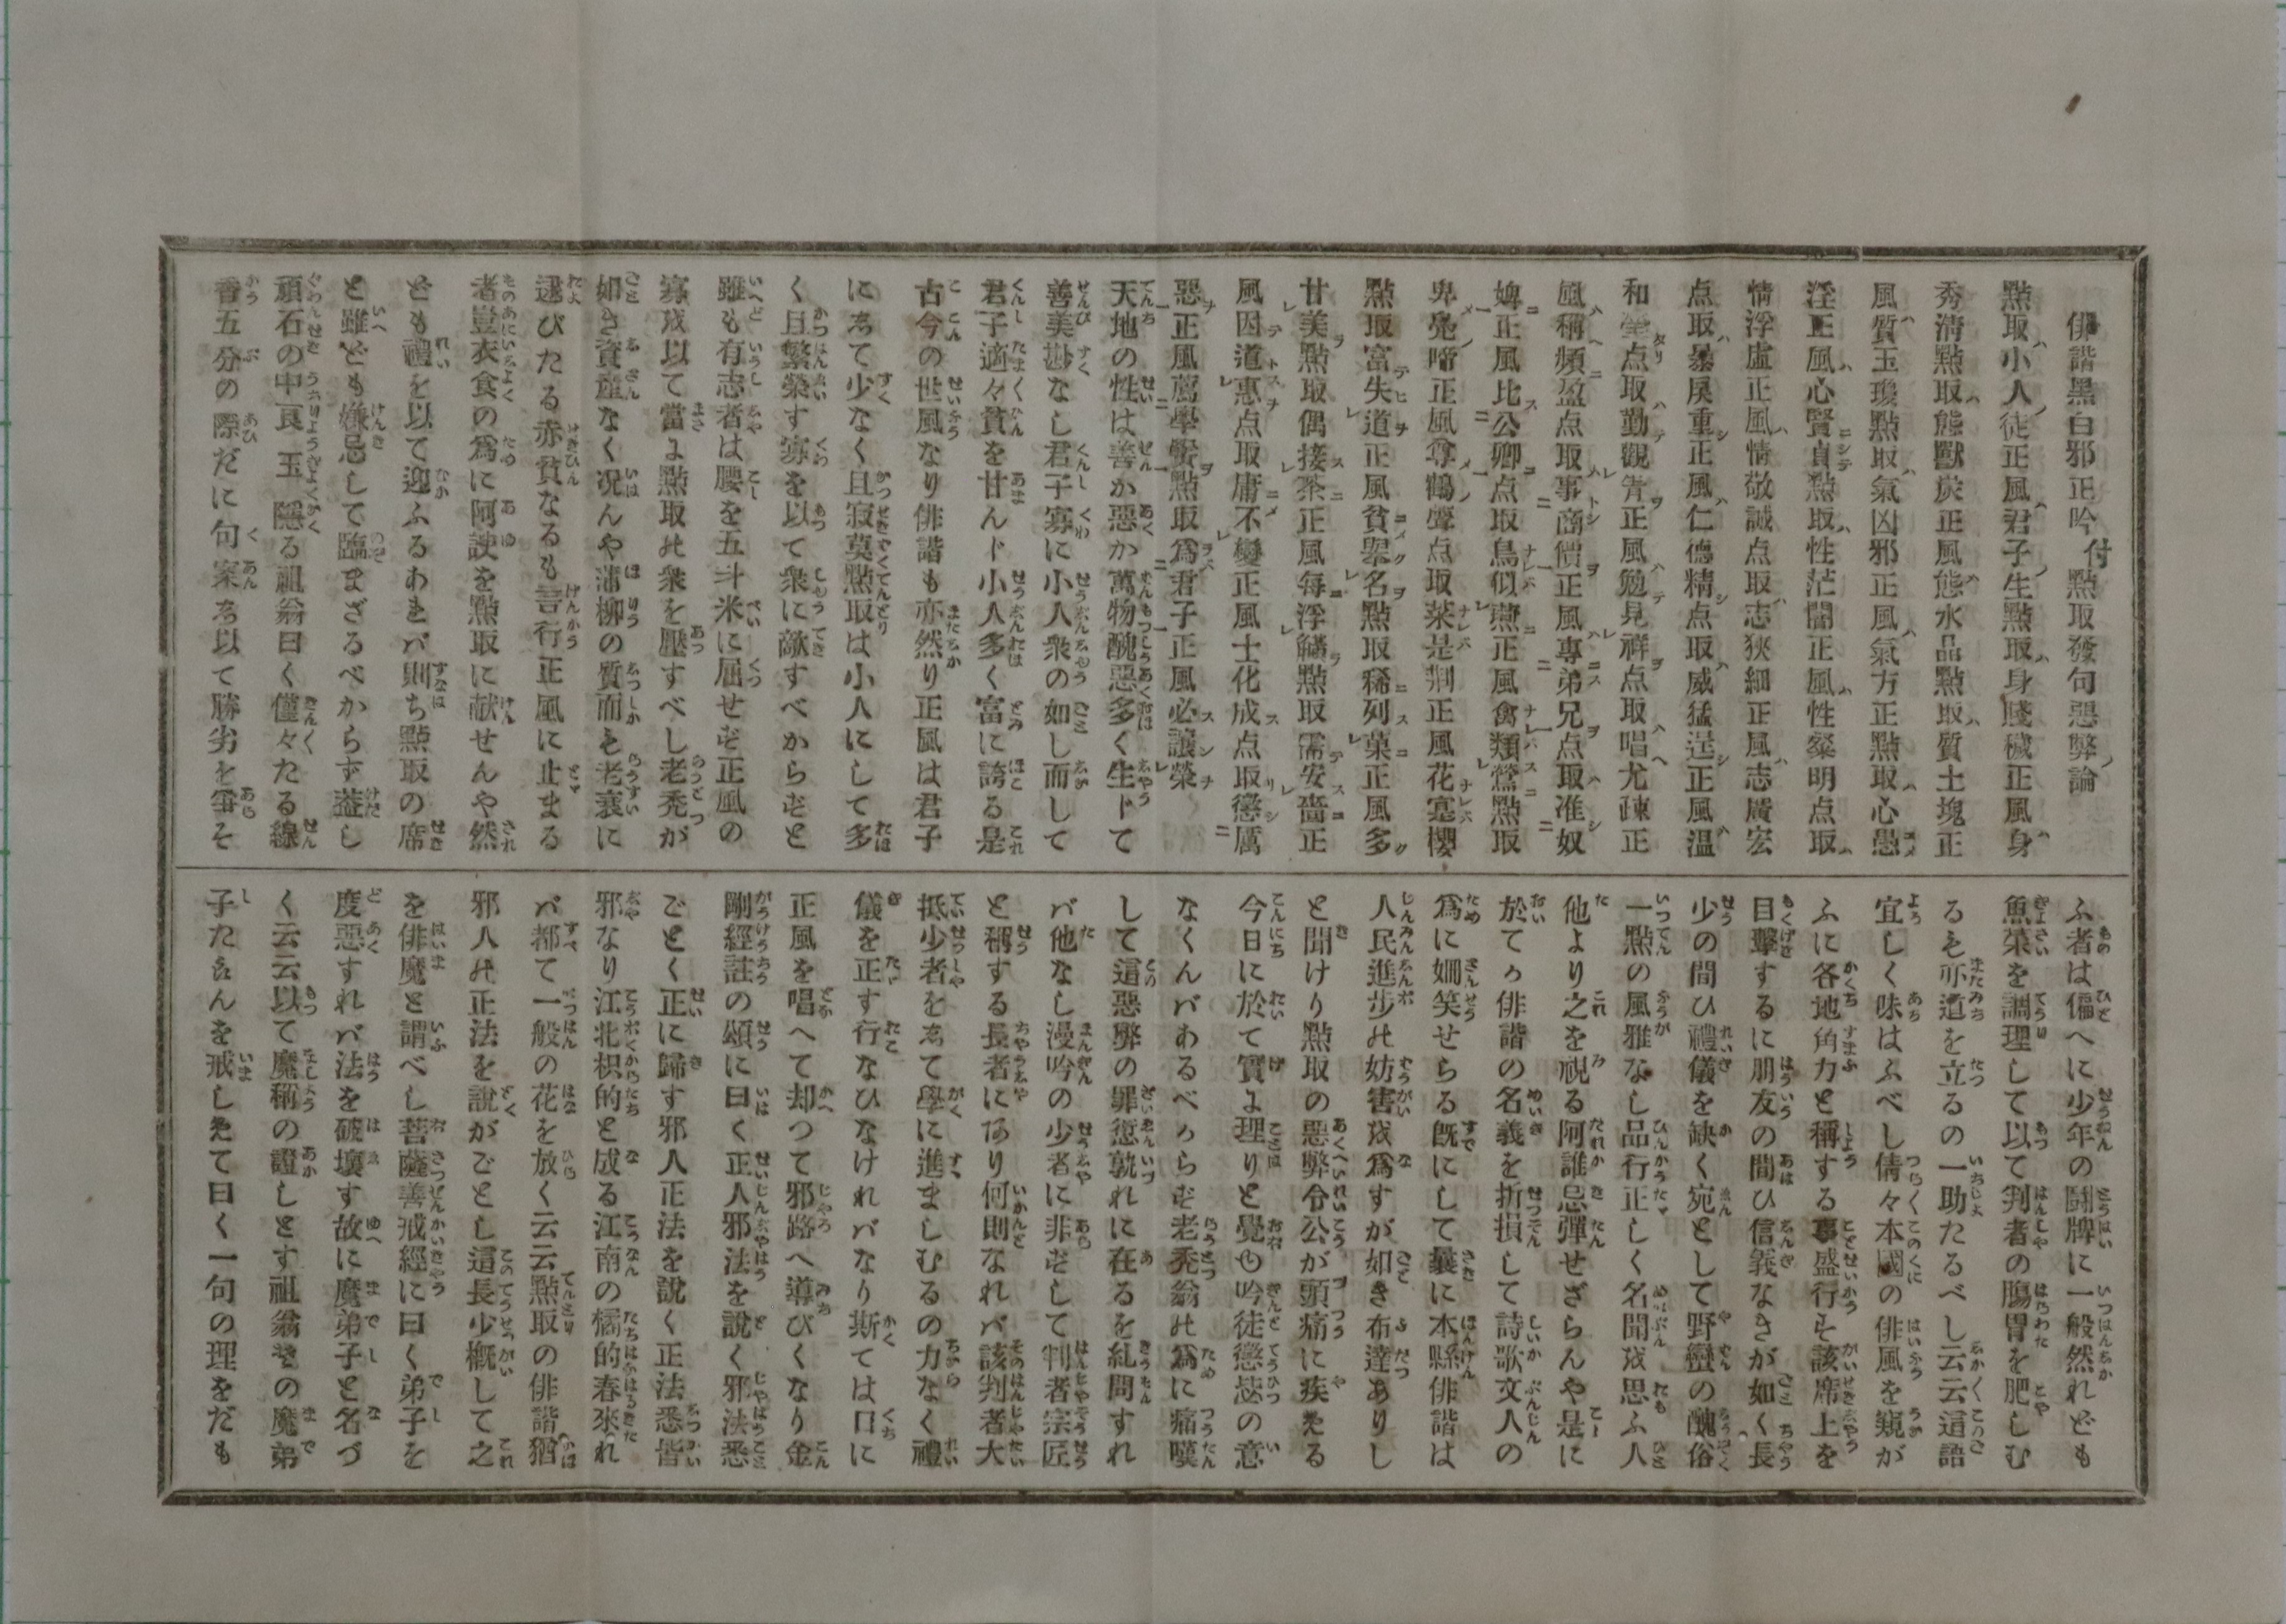 俳諧黒白邪正吟付點取發句惡弊論
點取小人徒正風君子生點取身賤穢正風身
秀清點取態獸炭正風態水晶點取質土塊正
風質玉瓊點取氣凶邪正風氣方正點取心愚
淫正風心賢貞點取性茫闇正風性粲明点取
情浮虛正風情敬誠点取志狹細正風志廣宏
点取暴戾重正風仁德精点取威猛逞正風温
和瑩点取勤觀眚正風勉見祥点取唱尤疎正
風稱頻盈点取事商價正風專弟兄点取准奴
婢正風比公卿点取鳥似鷰正風禽類鶯點取
卑鳧啼正風尊鶴聲点取菜是荊正風花寔櫻
點取富失道正風貧擧名點取稀列菓正風多
甘美點取偶接茶正風每浮觴點取需安嗇正
風因道惠点取庸不變正風士化成点取懲厲
惡正風薦學譽點取爲君子正風必讓榮
天地の性は善か惡か萬物醜惡多く生トて
善美尠なし君子寡に小人衆の如し而して
君子適々貧を甘んト小人多く富に誇る是
古今の世風なり俳諧も亦然り正風は君子
にゑて少なく且寂寞點取は小人にして多
く且繁榮す寡を以て衆に敵すべからずと
雖も有志者は腰を五斗米に屈せず正風の
寡を以て當に點取の衆を壓すべし老禿が
如き資產なく况んや蒲柳の質而も老衰に
逮びたる赤貧なるも言行正風に止まる
者豈衣食の爲に阿諛を點取に献せんや然
ども禮を以て迎ふるあれバ則ち點取の席
と雖ども嫌忌して臨まざるべからず葢し
頑石の中良玉隱る祖翁曰く僅々たる線
香五分の際だに句案を以て勝劣を爭そ
ふ者は偏へに少年の鬪牌に一般然れども
魚菜を調理して以て判者の膓胃を肥しむ
るも亦道を立るの一助たるべし云云這語
宜しく味はふべし倩々本國の俳風を窺が
ふに各地角力と稱する事盛行そ該席上を
目擊するに朋友の間ひ信義なきが如く長
少の間ひ禮儀を缺く宛として野蠻の醜俗
一點の風雅なし品行正しく名聞を思ふ人
他より之を視る阿誰忌彈せざらんや是に
於てゟ俳諧の名義を折損して詩歌文人の
爲に姍笑せらる旣にして曩に本縣俳諧は
人民進步の妨害を爲すが如き布達ありし
と聞けり點取の惡弊令公が頭痛に疾たる
今日に於て實に理りと覺ゆ吟徒懲毖の意
なくんバあるべからず老禿翁の爲に痛嘆
して這惡弊の罪愆孰れに在るを糺問すれ
バ他なし漫吟の少者に非ずして判者宗匠
と稱する長者にあり何則なれバ該判者大
抵少者をゑて學に進ましむるの力なく禮
儀を正す行なひなけれバなり斯ては口に
正風を唱へて却つて邪路へ導びくなり金
剛經註の頌に曰く正人邪法を說く邪法悉
ごとく正に歸す邪人正法を說く正法悉皆
邪なり江北枳的と成る江南の橘的春來れ
バ都て一般の花を放く云云點取の俳諧猶
邪人の正法を說がごとし這長少槪して之
を俳魔と謂べし菩薩善戒經に曰く弟子を
度惡すれバ法を破壞す故に魔弟子と名づ
く云云以て魔稱の證しとす祖翁その魔弟
子たらんを戒しめて曰く一句の理をだも